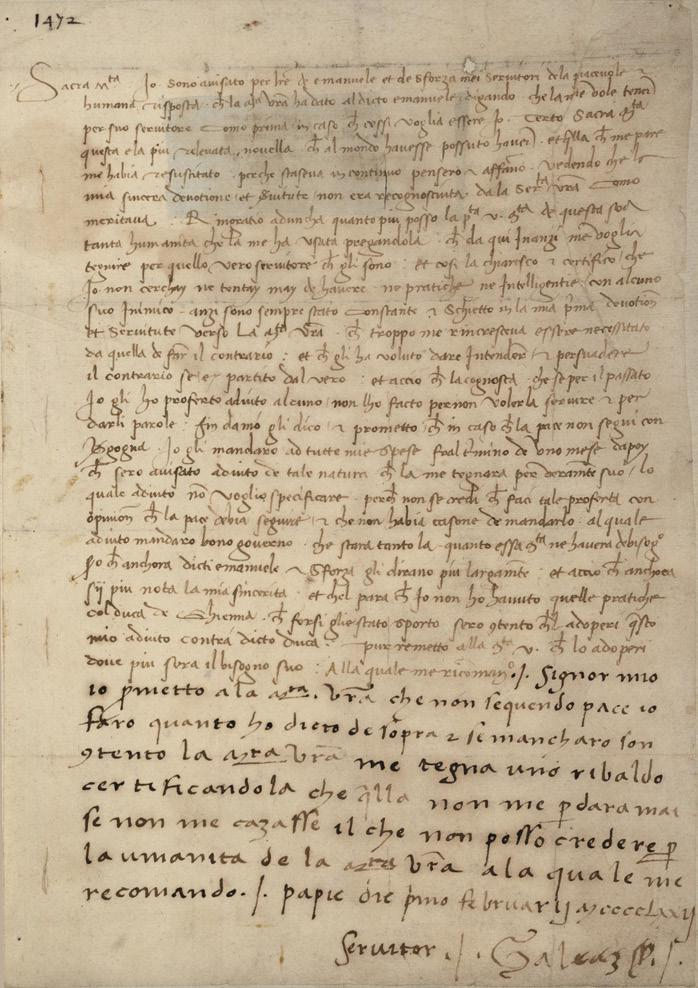 1472
Sacra Mta Io sono avisato per lre de emanuele et de Sforza mei Servitori de la piacevole
humana risposta ch la Mta Vra ha dato al dicto emanuele digando che la me vole teneri
per suo servitore Como prima in caso ch cossi voglia essere Io. Certo Sacra Mta
questa e la piu relevata novella ch al mondo havesse possuto haveri. et ch me pare
me habia resuscitato perche staseva in continuo pensero & affano. Vedendo che
mia sincera devotione et Servitute non era recognosciuta da la Serta Vra Como
meritava. Ringratio aduncha quanto piu posso la pta v. Mta de questa soa
tanta humanita che la me ha usata pregandola ch da qui Inanzi me voglia
tegnire per quello vero servitore ch gli sono: et cosi la chiarisco & certifico che
Io non cerchay ne tentay may de havere ne pratiche ne Intelligentie con alcuno
suo Inimico. anzi sono sempre stato Constante & Schietto in la mia pma devotion
et Servitute verso La Mta Vra. ch troppo me rincresceva essere necessitato
da quella de far il contrario: et ch gli ha voluto dare Intender & persuadere
il contrario se e partito dal vero: et accio ch la cognosca che se per il passato
Io gli ho proferto adiuto alcuno non lho facto per non volerla servire & per
darli parole: fin damo gli dico & prometto ch in caso ch la pace non segui con
Bgogna. Io gli mandaro ad tutte mie spese fral tmino de uno mese dapoy
ch sero avisato adiuto de tale natura ch la me tegnara per suo. lo
quale adiuto no voglio specificare perch non se credi ch faci tale proferta con
opinion ch la pace debia seguire & che non habia casone de mandarlo. al quale
adiuto mandaro bono governo che stara tanto la quanto essa Mta ne havera debisogo
so ch anchora dicti emanuele & Sforza gli dirano piu largamte: et accio ch anchora
sij piu nota la mia sincerita et chel para ch Io non ho havuto quelle pratiche
col duca de Ghienna ch forsi gli e stato sporto sero gtento chl adoperi qsto
mio adiuto contra dicto duca. pur remetto alla Mta v. ch lo adoperi
dove piu sera il bisogno suo: Alla quale me ricomando./. Signor mio
io pmetto a la Mta. Vra che non sequendo pace io
faro quanto ho dicto de sopra & se mancharo son
gtento la Mta Vra me tegna uno ribaldo
certificandola che qlla non me pdara mai
se non me cazasse il che non posso credere p
la umanita de la Mta Vra a la quale me
recomando./. papie die pmo februarij MccccLxxij
Servitor./. Galeaz